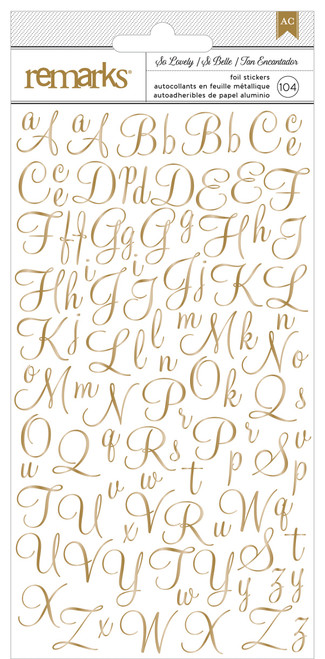 AC
remarks®
So Lovely / Si Belle / Tan Encantador
foil stickers
autocollants en feuille métallique
autoadheribles de papel aluminio
104
a A a A B b B b C c e
C c e D p d D E E F
F f f G g G g H h I
H h i J i I J j K L
K j L l m M k n N o
o M m N P r O k Q s
O u Q q R s P r p s S
T U v w V t R u W q t
U V x Y T W y y S z y
X Z x W X Z z